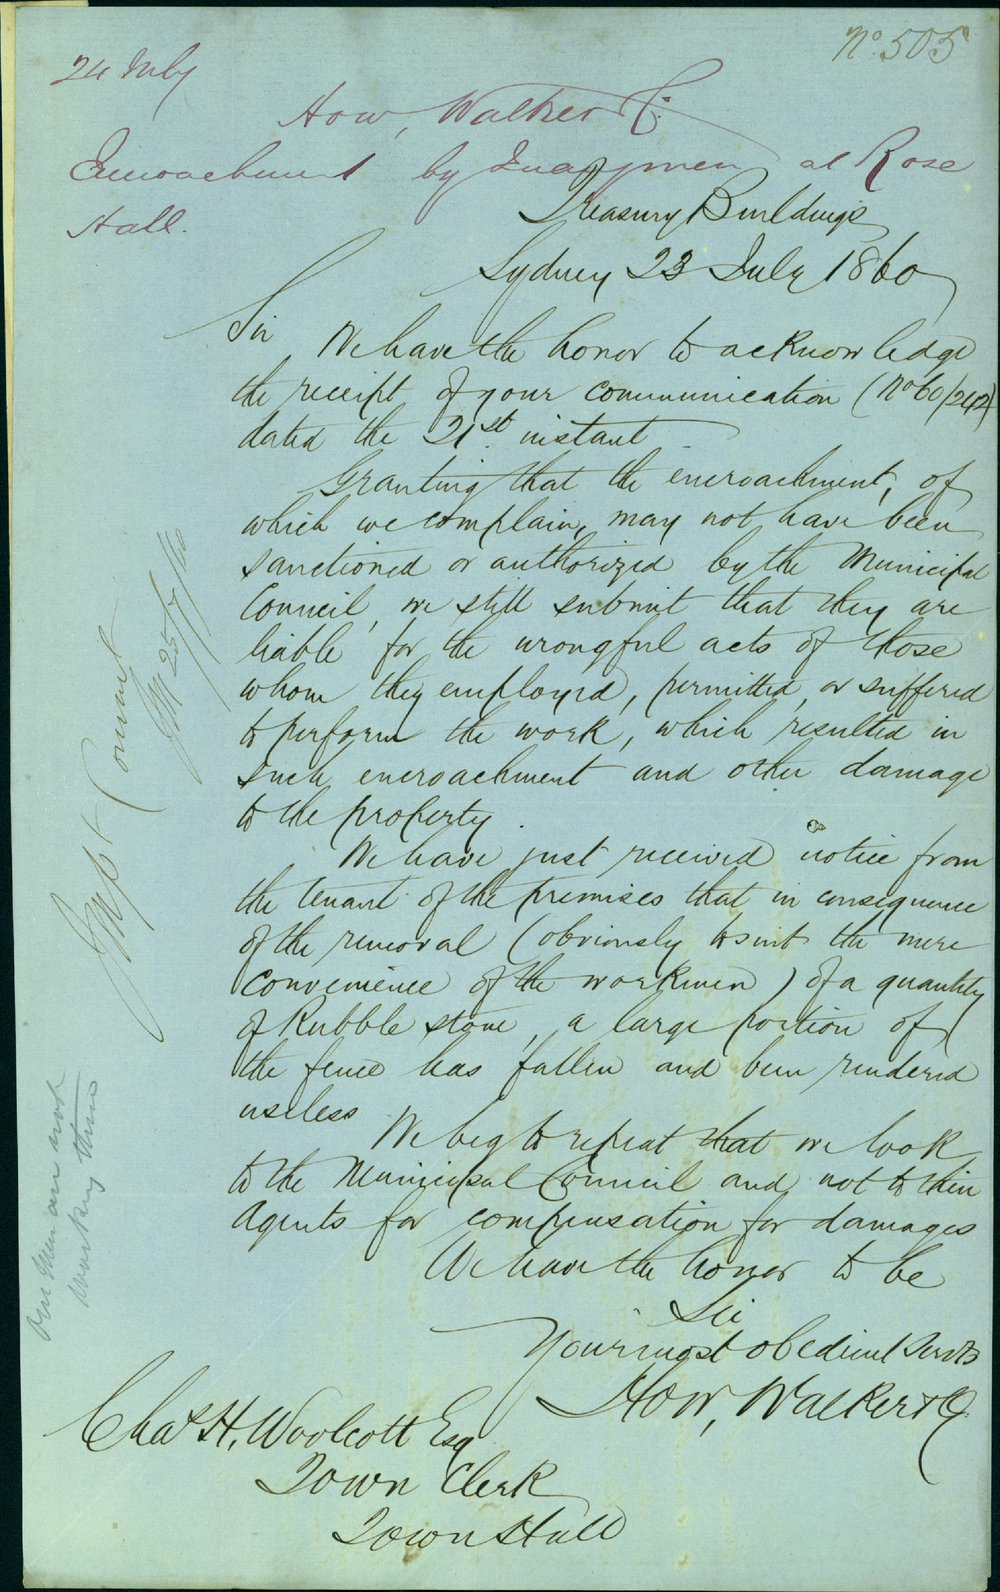 No. 505
24 July
How, Walker & Co.
Encroachment by Quarrymen at Rose
Hall.
Treasury Buildings
Sydney 23 July 1860
Sir
We have the honor to acknowledge
the receipt of your communication (No 60/242)
dated the 21st instant
Granting that the encroachment, of
which we complain, may not have been
sanctioned or authorized by the Municipal
Council, we still submit that they are
liable for the wrongful acts of those
whom they employed, permitted, or suffered
to perform the work, which resulted in
such encroachment and other damage
to the property.
We have just received notice from
the tenant of the premises that in consequence
of the removal (obviously to suit the mere
convenience of the workmen) of a quantity
of Rubble stone, a large portion of
the fence has fallen and been rendered
useless
We beg to repeat that we look
to the Municipal Council and not to their
Agents for compensation for damages
We have the honor to be
Sir
Your most obedient Servts
How, Walker & Co
Chas. H. Woolcott Esq
Town Clerk
Town Hall
Impt Commt
25/7/60
Our Men are not
working there